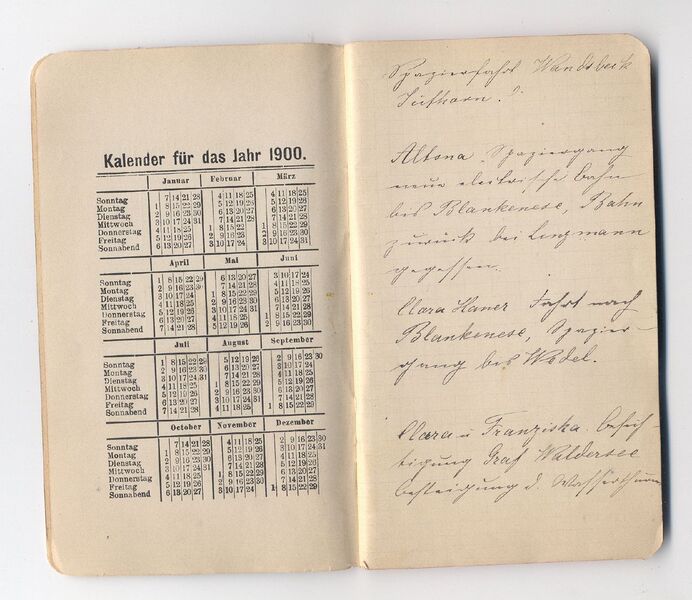 Kalender für das Jahr 1900.
Januar Februar März
Sonntag 7 14 21 28 4 11 18 25 4 11 18 25
Montag 1 8 15 22 29 5 12 19 26 5 12 19 26
Dienstag 2 9 16 23 30 6 13 20 27 6 13 20 27
Mittwoch 3 10 17 24 31 7 14 21 28 7 14 21 28
Donnerstag 4 11 18 25 1 8 15 22 1 8 15 22 29
Freitag 5 12 19 26 2 9 16 23 2 9 16 23 30
Sonnabend 6 13 20 27 3 10 17 24 3 10 17 24 31
April Mai Juni
Sonntag 1 8 15 22 29 6 13 20 27 3 10 17 24
Montag 2 9 16 23 30 7 14 21 28 4 11 18 25
Dienstag 3 10 17 24 1 8 15 22 29 5 12 19 26
Mittwoch 4 11 18 25 2 9 16 23 30 6 13 20 27
Donnerstag 5 12 19 26 3 10 17 24 31 7 14 21 28
Freitag 6 13 20 27 4 11 18 25 1 8 15 22 29
Sonnabend 7 14 21 28 5 12 19 26 2 9 16 23 30
Juli August September
Sonntag 1 8 15 22 29 5 12 19 26 2 9 16 23 30
Montag 2 9 16 23 30 6 13 20 27 3 10 17 24
Dienstag 3 10 17 24 31 7 14 21 28 4 11 18 25
Mittwoch 4 11 18 25 1 8 15 22 29 5 12 19 26
Donnerstag 5 12 19 26 2 9 16 23 30 6 13 20 27
Freitag 6 13 20 27 3 10 17 24 31 7 14 21 28
Sonnabend 7 14 21 28 4 11 18 25 1 8 15 22 29
October November Dezember
Sonntag 7 14 21 28 4 11 18 25 2 9 16 23 30
Montag 1 8 15 22 29 5 12 19 26 3 10 17 24 31
Dienstag 2 9 16 23 30 6 13 20 27 4 11 18 25
Mittwoch 3 10 17 24 31 7 14 21 28 5 12 19 26
Donnerstag 4 11 18 25 1 8 15 22 29 6 13 20 27
Freitag 5 12 19 26 2 9 16 23 30 7 14 21 28
Sonnabend 6 13 20 27 3 10 17 24 1 8 15 22 29
Spazierfahrt Wandsbeck
Altona, Spaziergang
neue elektrische Bahn
bis Blankenese, Bahn
zurück bei Lenzmann
gegessen.
Clara Haner Fahrt nach
Blankenese, Spazier-
gang bis Wedel.
Clara u Franziska. Besich-
tigung Graf Waldersee
Besteigung d. Wasserthurm